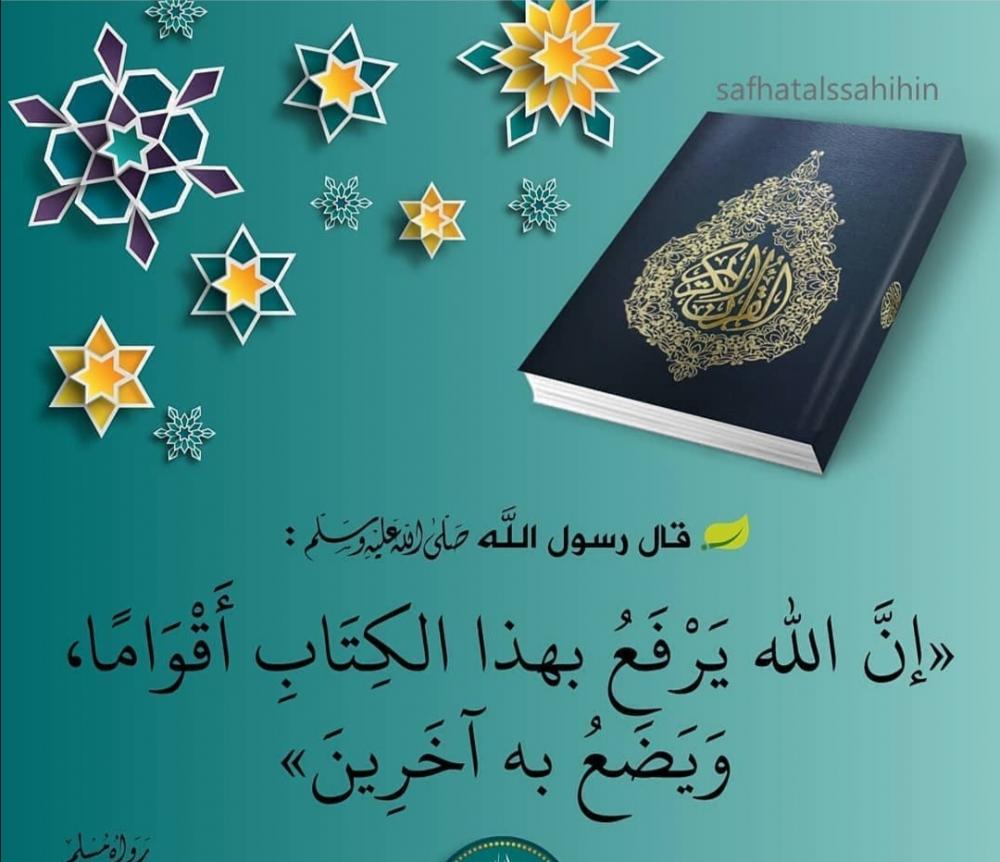 safhatalssahihin
القرآن الكريم
قال رسول اللَّه صَلَّى اللَّهُ عَلَيْهِ وَسَلَّم :
«إنَّ الله يَرْفَعُ بهذا الكِتَابِ أَقْوَامًا،
وَيَضَعُ به آخَرِينَ»
رَوَاهُ مُسْلِم